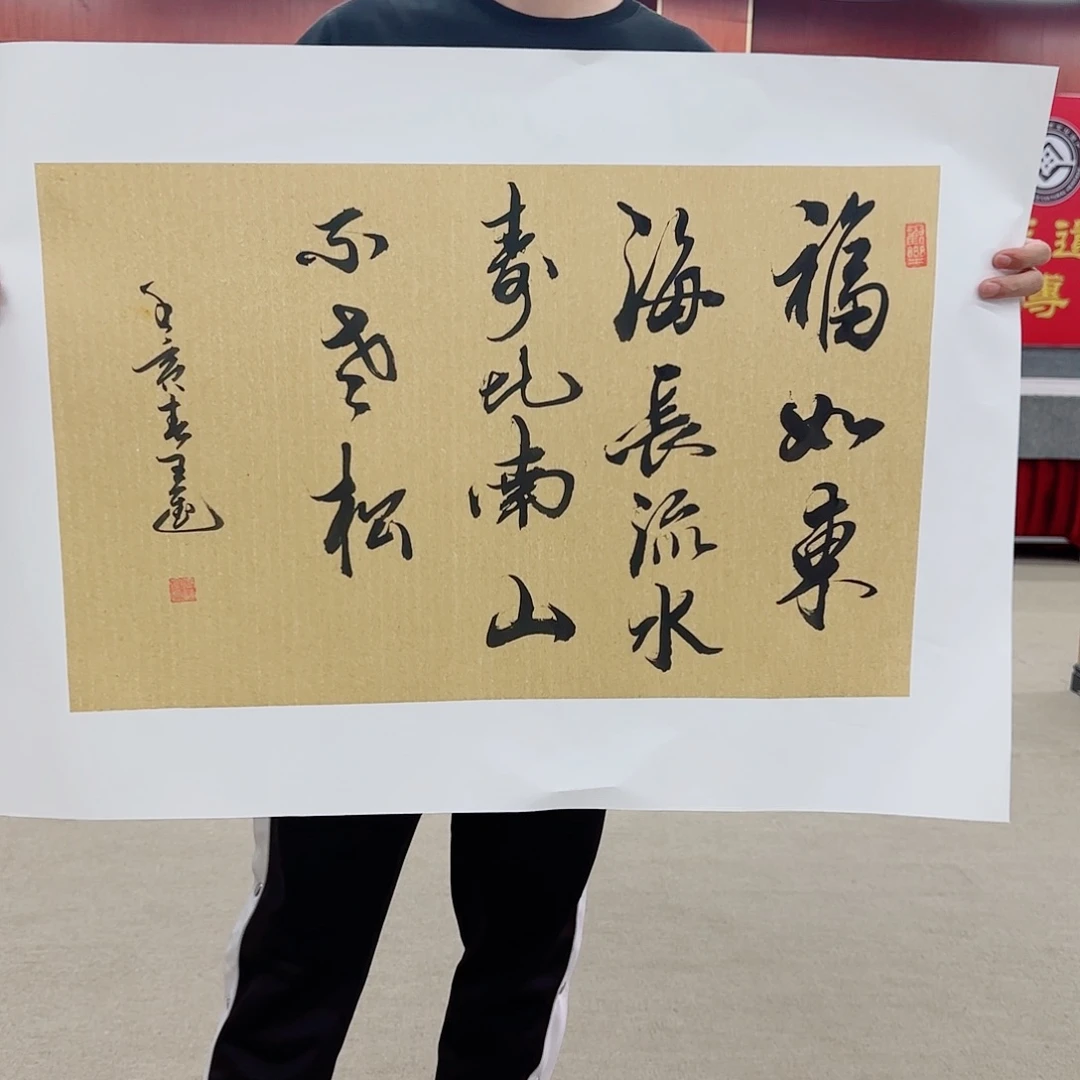 福如東
海長流水
寿比南山
不老松
壬寅春王
道